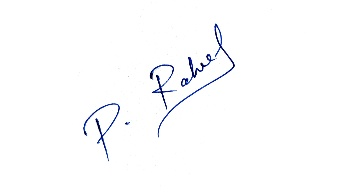 P. Rahul